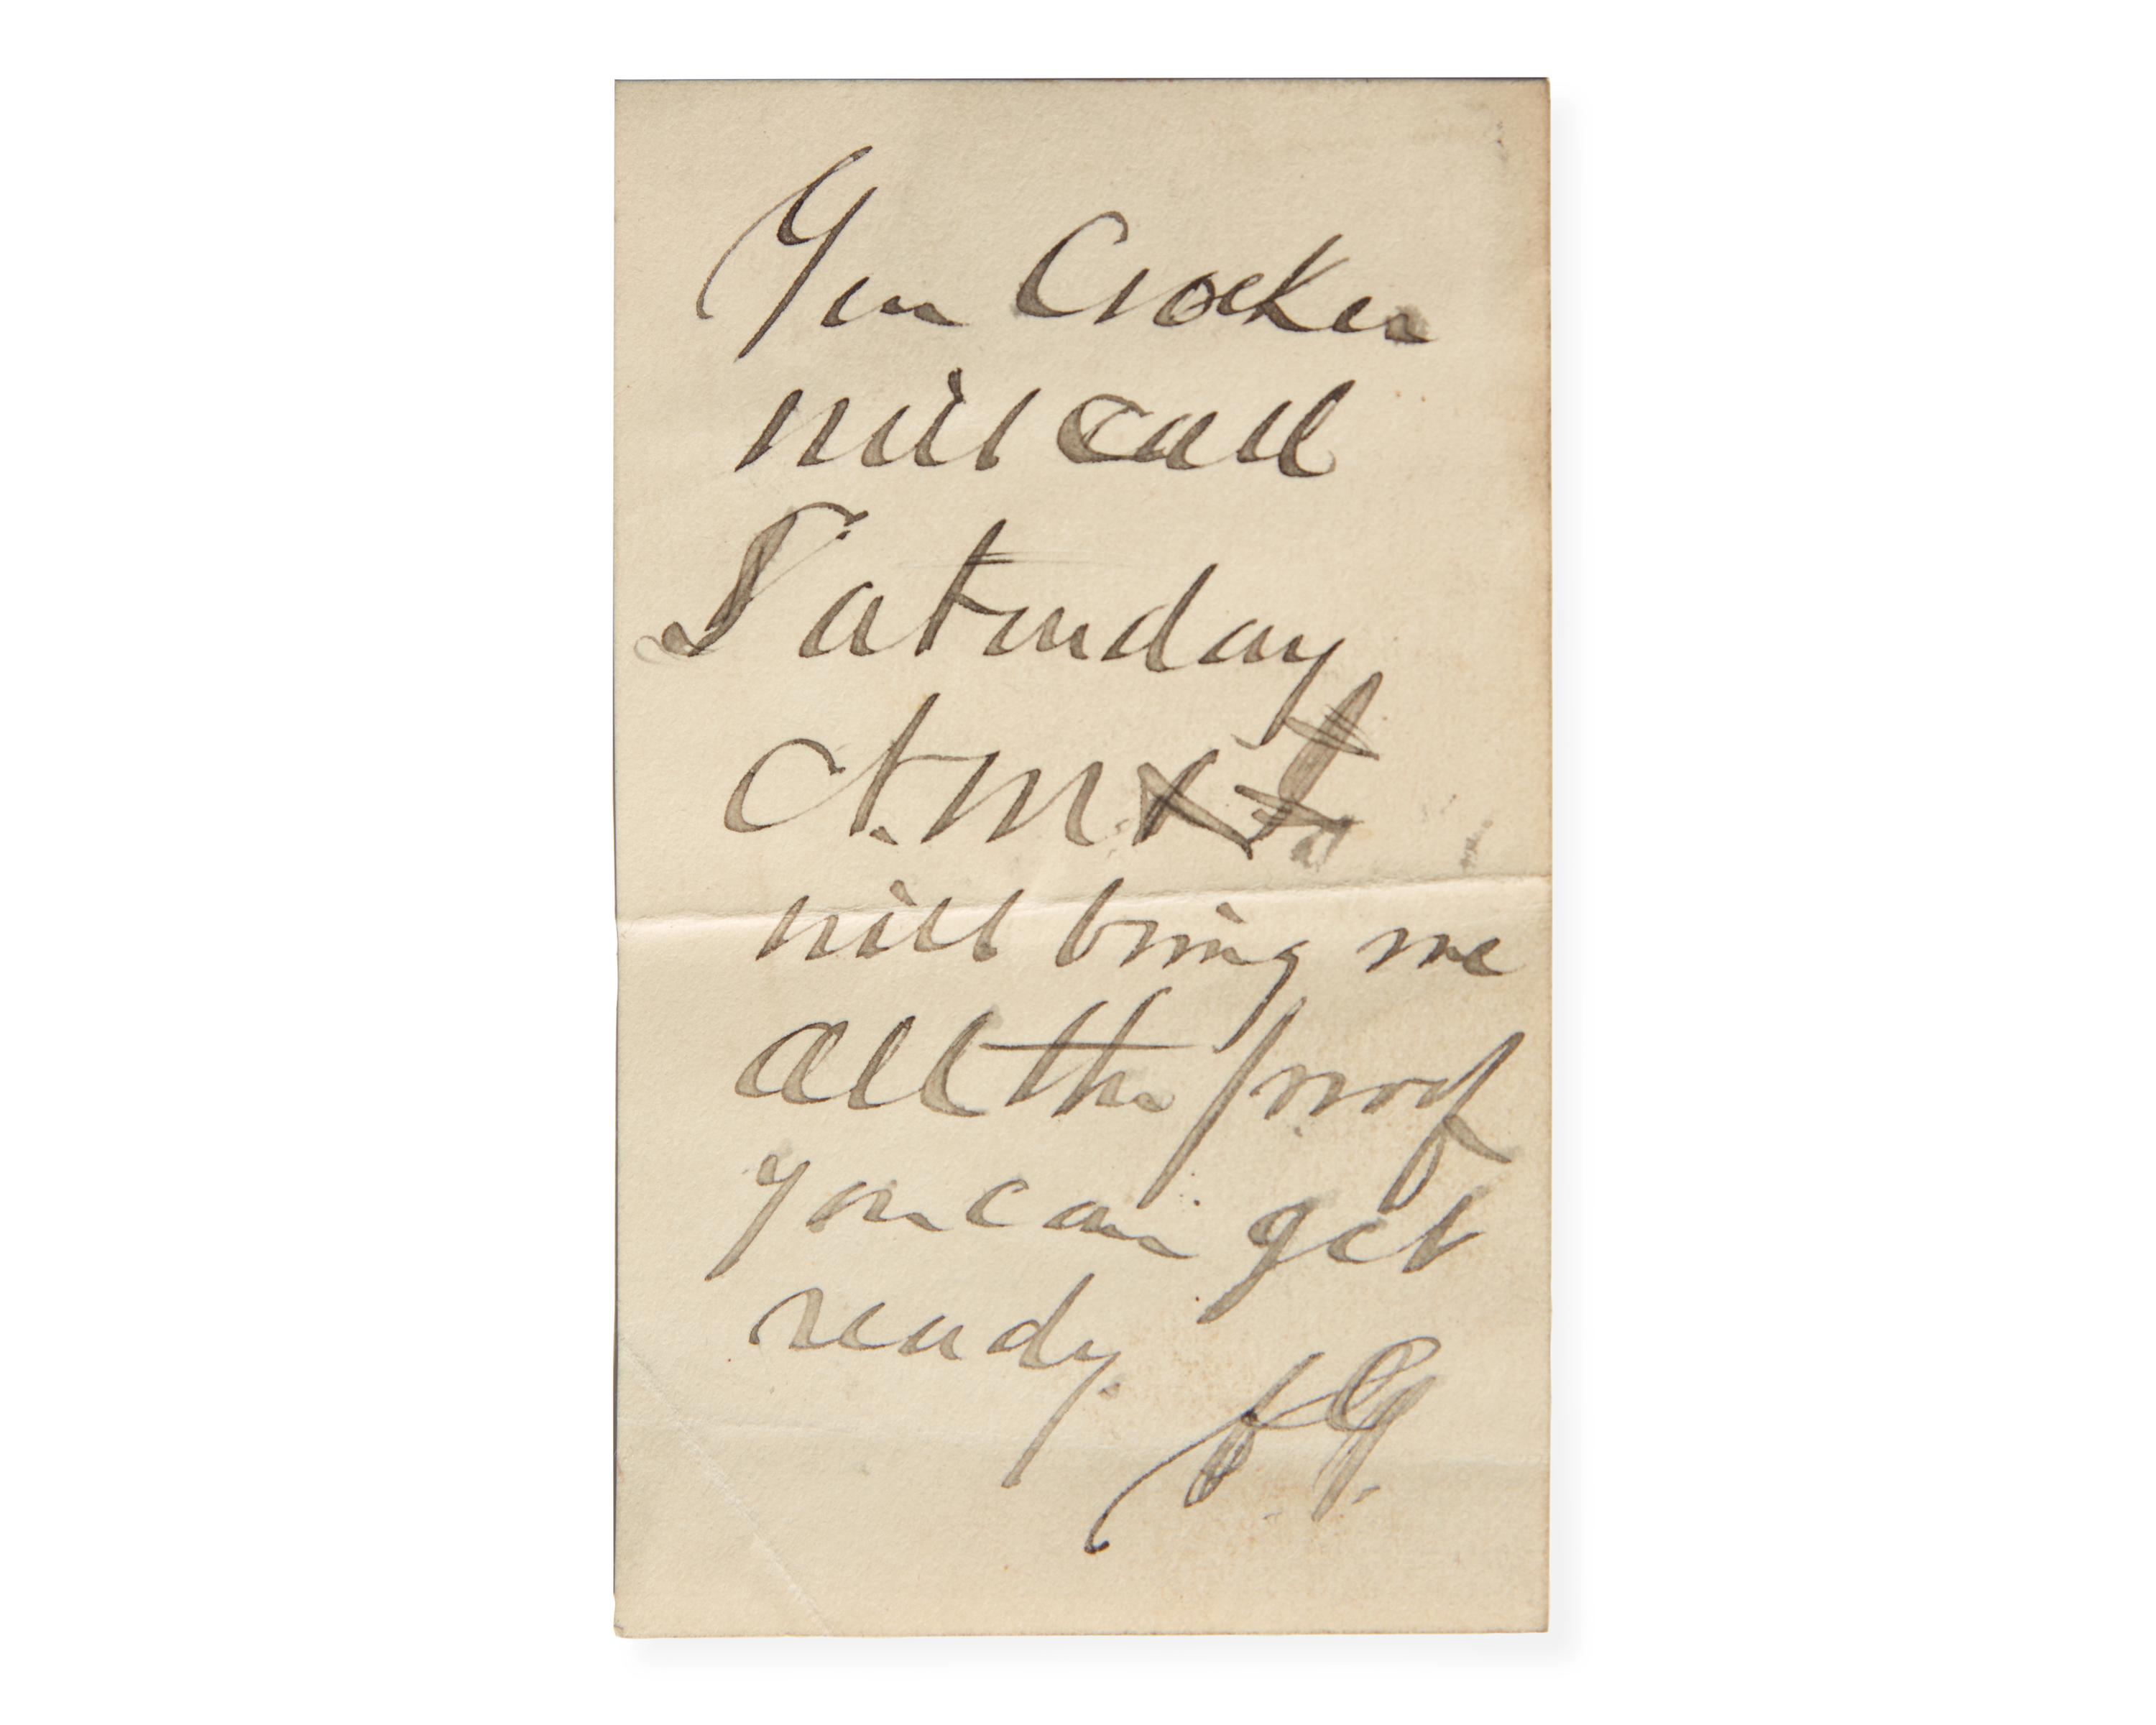 Gen Crocker
will call
Saturday
A.M.
will bring me
all the proof
you can get
ready.